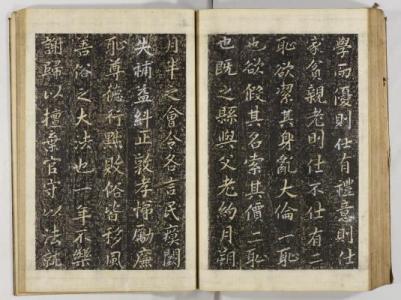 學而優則仕有禮意則仕
家貧親老則仕不仕有二
恥欲潔其身亂大倫一恥
也欲假其名索其價二恥
也既之縣與父老約月朔
月半之會令各言民瘼闕
失補益糾正敦孝悌勵廉
恥尊德行黜敗俗皆移風
善俗之大法也一年不樂
謝歸以擅棄官守以法